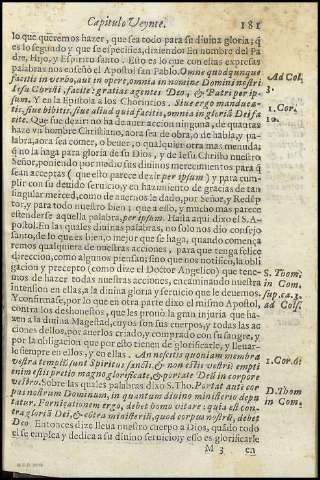 Capitulo Veynte. 181
lo que queremos hazer, que sea todo para su diuina gloria; q̃
es lo segundo y que se especifica, diziendo: En nombre del Pa
dre, Hijo, y Espiritu santo. Esto es lo que con estas expresas
palabras nos enseñó el Apostol san Pablo. Omne quodcunque
facitis in verbo, aut in opere, omnia in nomine Domini nostri
Iesu Christi, facite: gratias agentes Deo, & Patri per ip-
sum. Y en la Epistola a los Chorintios. Siue ergo manduca-
tis, siue bibitis, siue aliud quid facitis, omnia in gloriã Dei fa
cite. Que fue dezir: no ha de auer accion ninguna, de quantas
haze vn hombre Christiano, aora sea de obra, ò de habla, y pa-
labra, aora sea comer, o beuer, o qualquier otra mas menuda;
q̃ no la haga para gloria de su Dios, y de Iesu Christo nuestro
Señor, poniendo por medio sus diuinos merecimientos para q̃
sean acceptas ( que esto parece dezir per ipsum ) y para cum-
plir con su deuido seruicio, y en hazimento de gracias de tan
singular merced, como de auernos la dado, por Señor, y Redẽp
tor, y para todo nuestro bien; que a esto, y mucho mas parece
estenderse aquella palabra, per ipsum. Hasta aqui dixo el S. A-
postol. En las quales diuinas palabras, no solo nos dio consejo
santo, de lo que es bien, o mejor que se haga, quando comença
remos qualquiera de nuestras acciones, para que tenga felice
direccion, como algunos piensan; sino que nos notificò, la obli
gacion y precepto (como dize el Doctor Angelico) que tene-
mos de hazer todas nuestras acciones, encaminando nuestra
intension en ellas, a la diuina gloria y seruicio que le deuemos.
Y confirmase, por lo que en otra parte dixo el mismo Apostol,
contra los deshonestos, que les prouò la gran injuria que ha-
zen a la diuina Magestad, cuyos son sus cuerpos, y todas las ac
ciones dellos, por auerlos criado, y comprado con su sangre, y
por la obligacion que por esto tienen de glorificarle, y lleuar-
lo siempre en ellos, y en ellas. An nescitis quoniam membra
vestra templũ sunt Spiritus sancti, & non estis vestri: empti
enim estis pretio magno, glorificate, & portate Deũ in corpore
vestro. Sobre las quales palabras dixo S. Tho. Portat auti cor
pus nostrum Dominum, in quantum diuino ministerio depu
tatur. Fornicationem ergo, debet homo vitare: quia est con-
tra gloriã Dei, & cõtra ministeriũ, quod corpus nostrũ, debet
Deo. Entonces dize lleua nuestro cuerpo a Dios, quãdo todo
el se emplea y dedica a su diuino seruicio, y esso es glorificarle
M 3 en
Ad Col.
3.
1. Cor.
10.
S. Thom.
in Com.
sup. ca. 3.
ad Cols.
1. Cor. 6.
D. Thom
in Com.